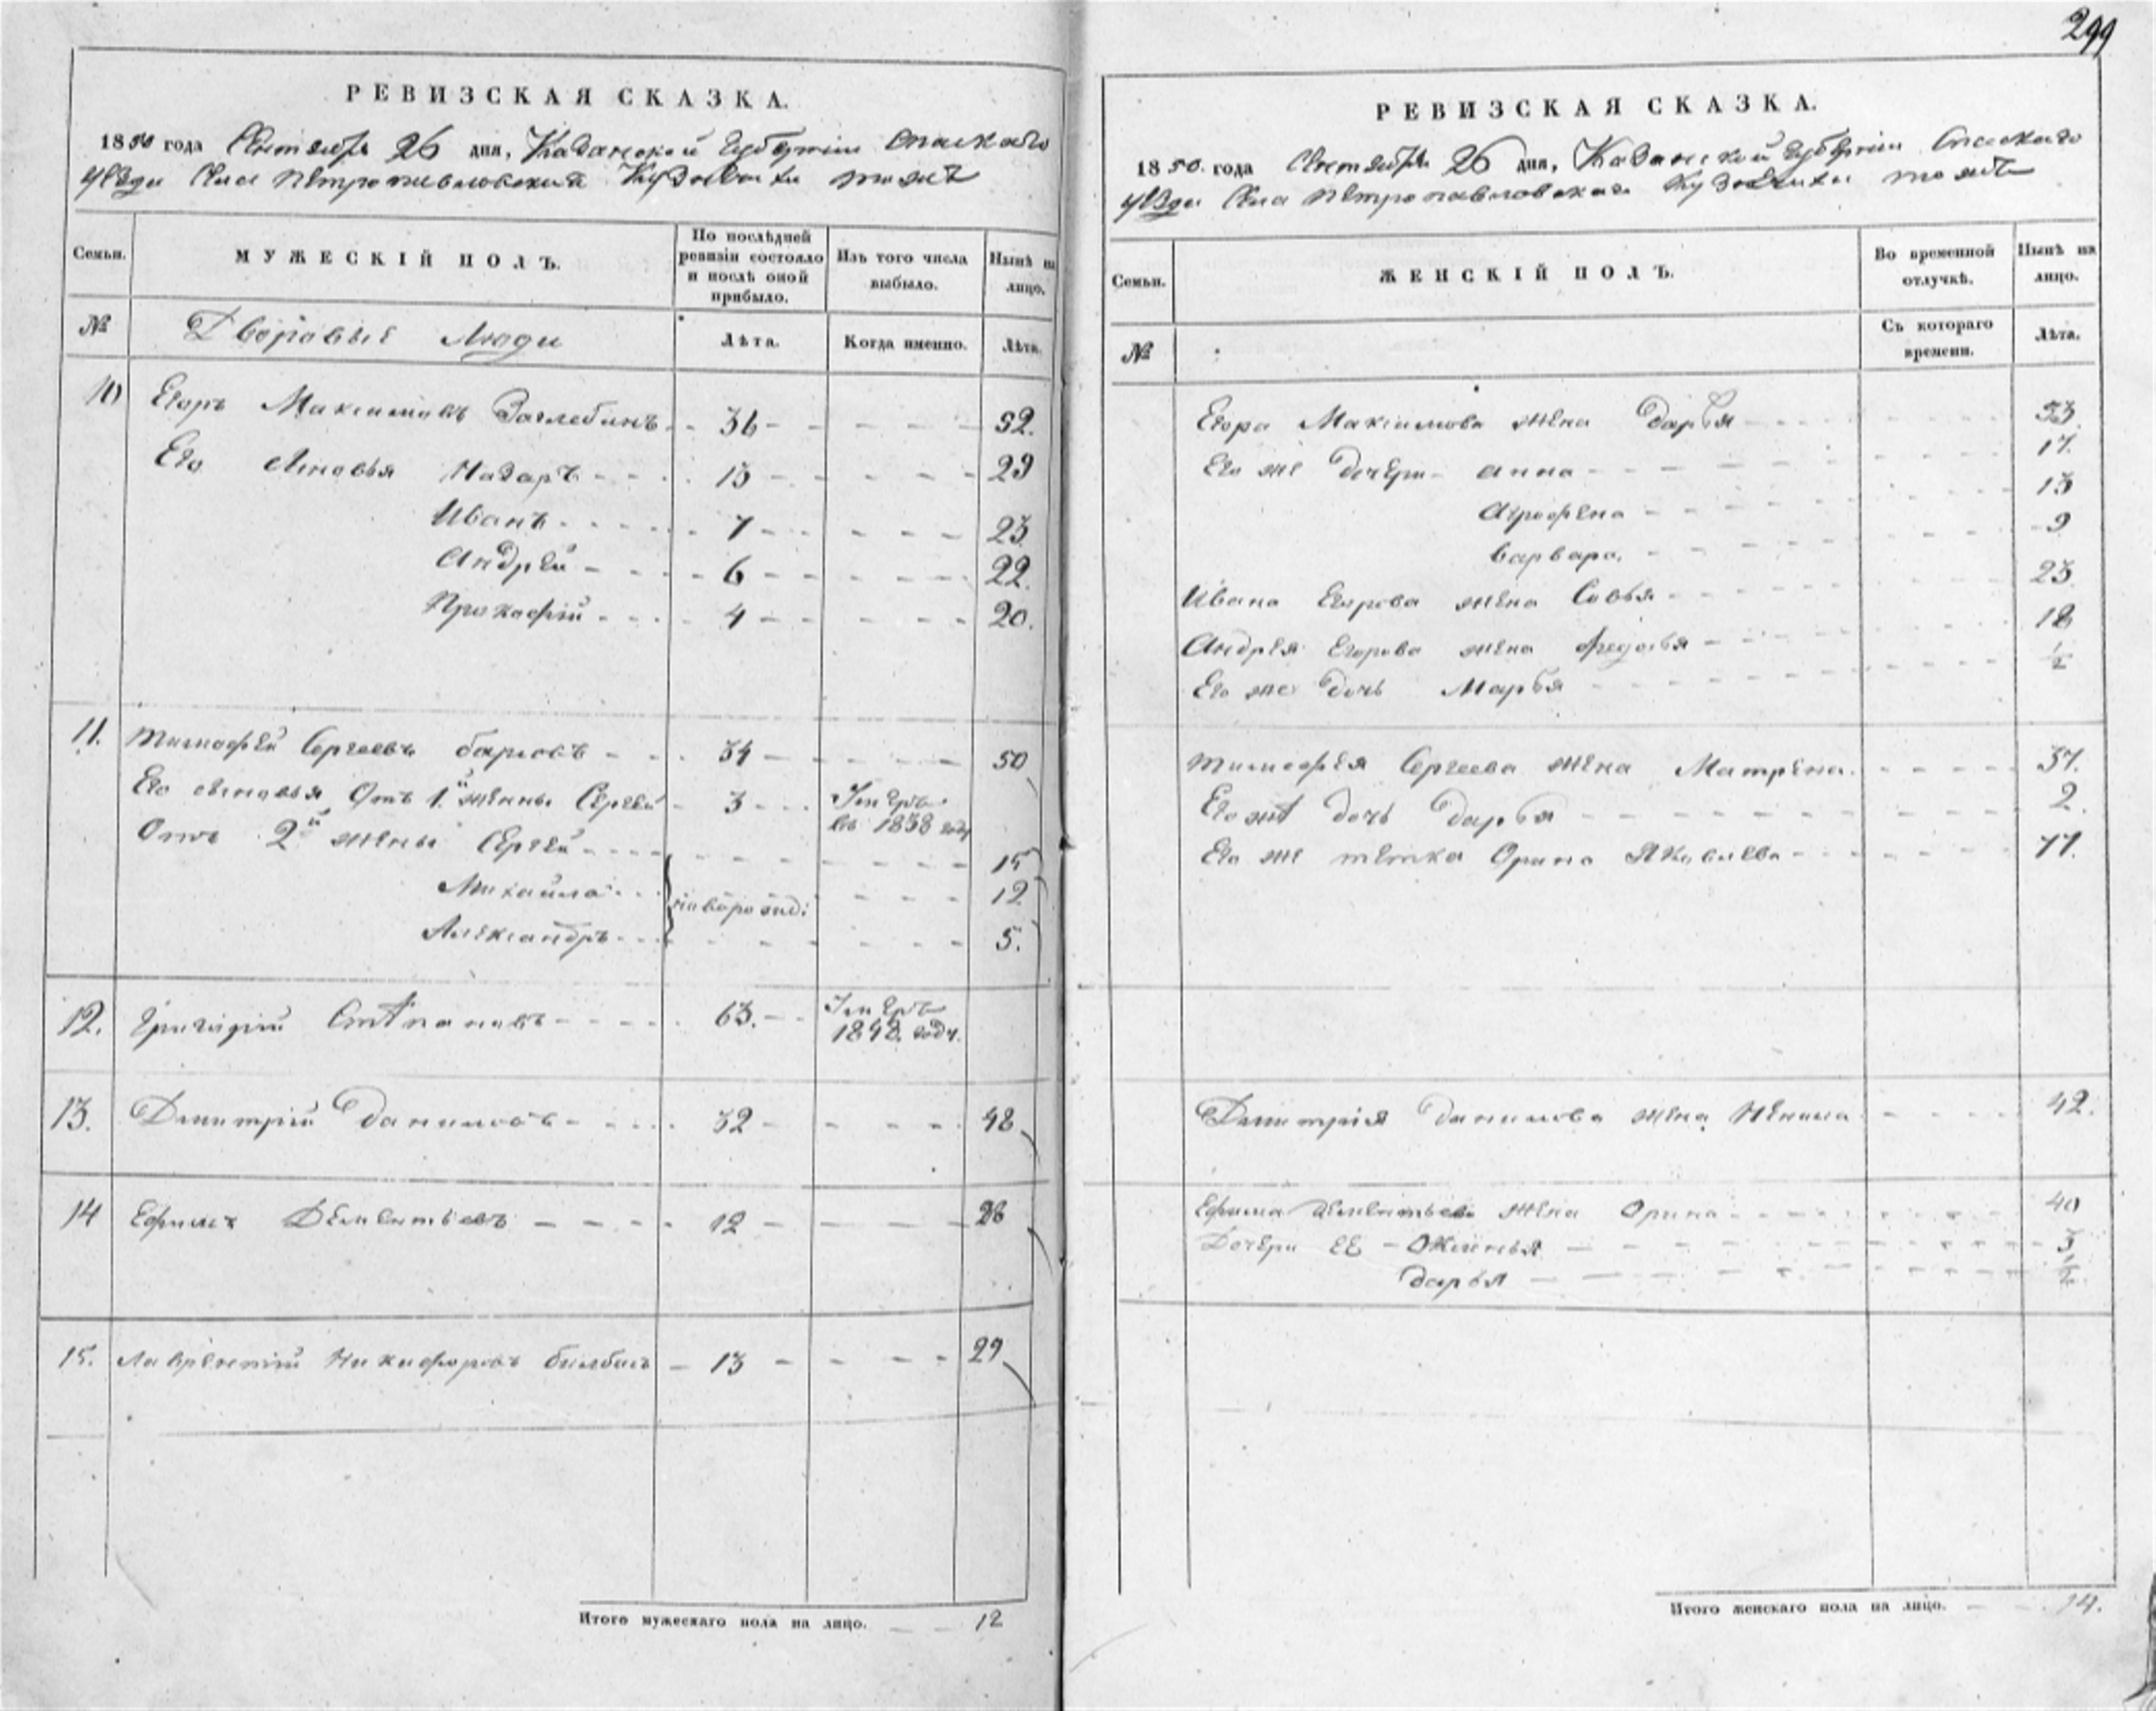 299
РЕВИЗСКАЯ СКАЗКА.
1850 года Сентября 26 дня, Казанской Губернiи Спаскаго
уезда Села Петропавловскаго Кузнечихи тожъ
Семьи.
МУЖЕСКІЙ ПОЛЪ.
По послѣдней ревизіи состояло и послѣ оной прибыло.
Изъ того числа выбыло.
Нынѣ на лицо.
№
Дворовые Люди
Лѣта.
Когда именно.
Лѣта.
10 Егоръ Максимовъ Заглебинъ 36 52.
Его сыновья Назаръ 13 29
Иванъ 7 23
Андрей 6 22.
Прокофiй 4 20.
11. Тимофей Сергеевъ 34 50
Его сыновья Отъ 1й жены Сергей 3 Умеръ въ 1838 году
Отъ 2й жены Сергей 15
Михайла новорожд: 12
Александръ 5.
12. Григорiй Степановъ 63. Умеръ 1848 году.
13. Дмитрiй Даниловъ 32 48
14 Ефимъ Дементьевъ 12 28
15. Лаврентiй Никифоровъ 13 29
Итого мужескаго пола на лицо. 12
РЕВИЗСКАЯ СКАЗКА.
1850. года Сентября 26 дня, Казанской Губернiи Спаскаго
уезда Села Петропавловскаго Кузнечихи тожъ
Семьи.
ЖЕНСКІЙ ПОЛЪ.
Во временной отлучкѣ.
Нынѣ на лицо.
№
Съ котораго времени.
Лѣта.
Егора Максимова жена Дарья 53.
Его же дочери Анна 17.
Агрофена 13
Варвара. 9
Ивана Егорова жена Софья 23.
Андрея Егорова жена Федосья 18
Его же дочь Марья 1/2
Тимофея Сергеева жена Матрена. 37.
Его же дочь Дарья 2.
Его же тетка Орина Яковлева 77.
Дмитрiя Данилова жена Ненила 42.
Ефима Дементьева жена Орина 40
Дочери ее Оксинья 3
Дарья 1/2
Итого женскаго пола на лицо. 14.